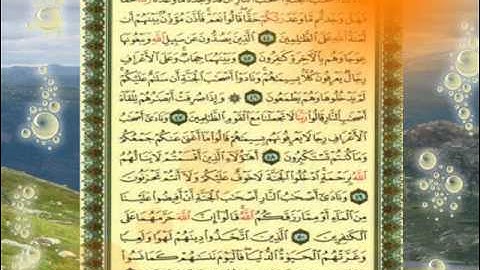 فَهَلْ وَجَدتُّم مَّا وَعَدَ رَبُّكُمْ حَقًّا قَالُوا۟ نَعَمْ فَأَذَّنَ مُؤَذِّنٌۢ بَيْنَهُمْ أَن
لَّعْنَةُ ٱللَّهِ عَلَى ٱلظَّٰلِمِينَ ٤٤ ٱلَّذِينَ يَصُدُّونَ عَن سَبِيلِ ٱللَّهِ وَيَبْغُونَهَا
عِوَجًا وَهُم بِٱلْءَاخِرَةِ كَٰفِرُونَ ٤٥ وَبَيْنَهُمَا حِجَابٌ وَعَلَى ٱلْأَعْرَافِ
رِجَالٌ يَعْرِفُونَ كُلًّۢا بِسِيمَىٰهُمْ وَنَادَوْا۟ أَصْحَٰبَ ٱلْجَنَّةِ أَن سَلَٰمٌ عَلَيْكُمْ
لَمْ يَدْخُلُوهَا وَهُمْ يَطْمَعُونَ ٤٦ ۞ وَإِذَا صُرِفَتْ أَبْصَٰرُهُمْ تِلْقَآءَ
أَصْحَٰبِ ٱلنَّارِ قَالُوا۟ رَبَّنَا لَا تَجْعَلْنَا مَعَ ٱلْقَوْمِ ٱلظَّٰلِمِينَ ٤٧ وَنَادَىٰٓ أَصْحَٰبُ
ٱلْأَعْرَافِ رِجَالًا يَعْرِفُونَهُم بِسِيمَىٰهُمْ قَالُوا۟ مَآ أَغْنَىٰ عَنكُمْ جَمْعُكُمْ
وَمَا كُنتُمْ تَسْتَكْبِرُونَ ٤٨ أَهَٰٓؤُلَآءِ ٱلَّذِينَ أَقْسَمْتُمْ لَا يَنَالُهُمُ
ٱللَّهُ بِرَحْمَةٍ ٱدْخُلُوا۟ ٱلْجَنَّةَ لَا خَوْفٌ عَلَيْكُمْ وَلَآ أَنتُمْ تَحْزَنُونَ
٤٩ وَنَادَىٰٓ أَصْحَٰبُ ٱلنَّارِ أَصْحَٰبَ ٱلْجَنَّةِ أَنْ أَفِيضُوا۟ عَلَيْنَا
مِنَ ٱلْمَآءِ أَوْ مِمَّا رَزَقَكُمُ ٱللَّهُ قَالُوٓا۟ إِنَّ ٱللَّهَ حَرَّمَهُمَا عَلَى
ٱلْكَٰفِرِينَ ٥٠ ٱلَّذِينَ ٱتَّخَذُوا۟ دِينَهُمْ لَهْوًا وَلَعِبًا
وَغَرَّتْهُمُ ٱلْحَيَوٰةُ ٱلدُّنْيَا فَٱلْيَوْمَ نَنسَىٰهُمْ كَمَا نَسُوا۟